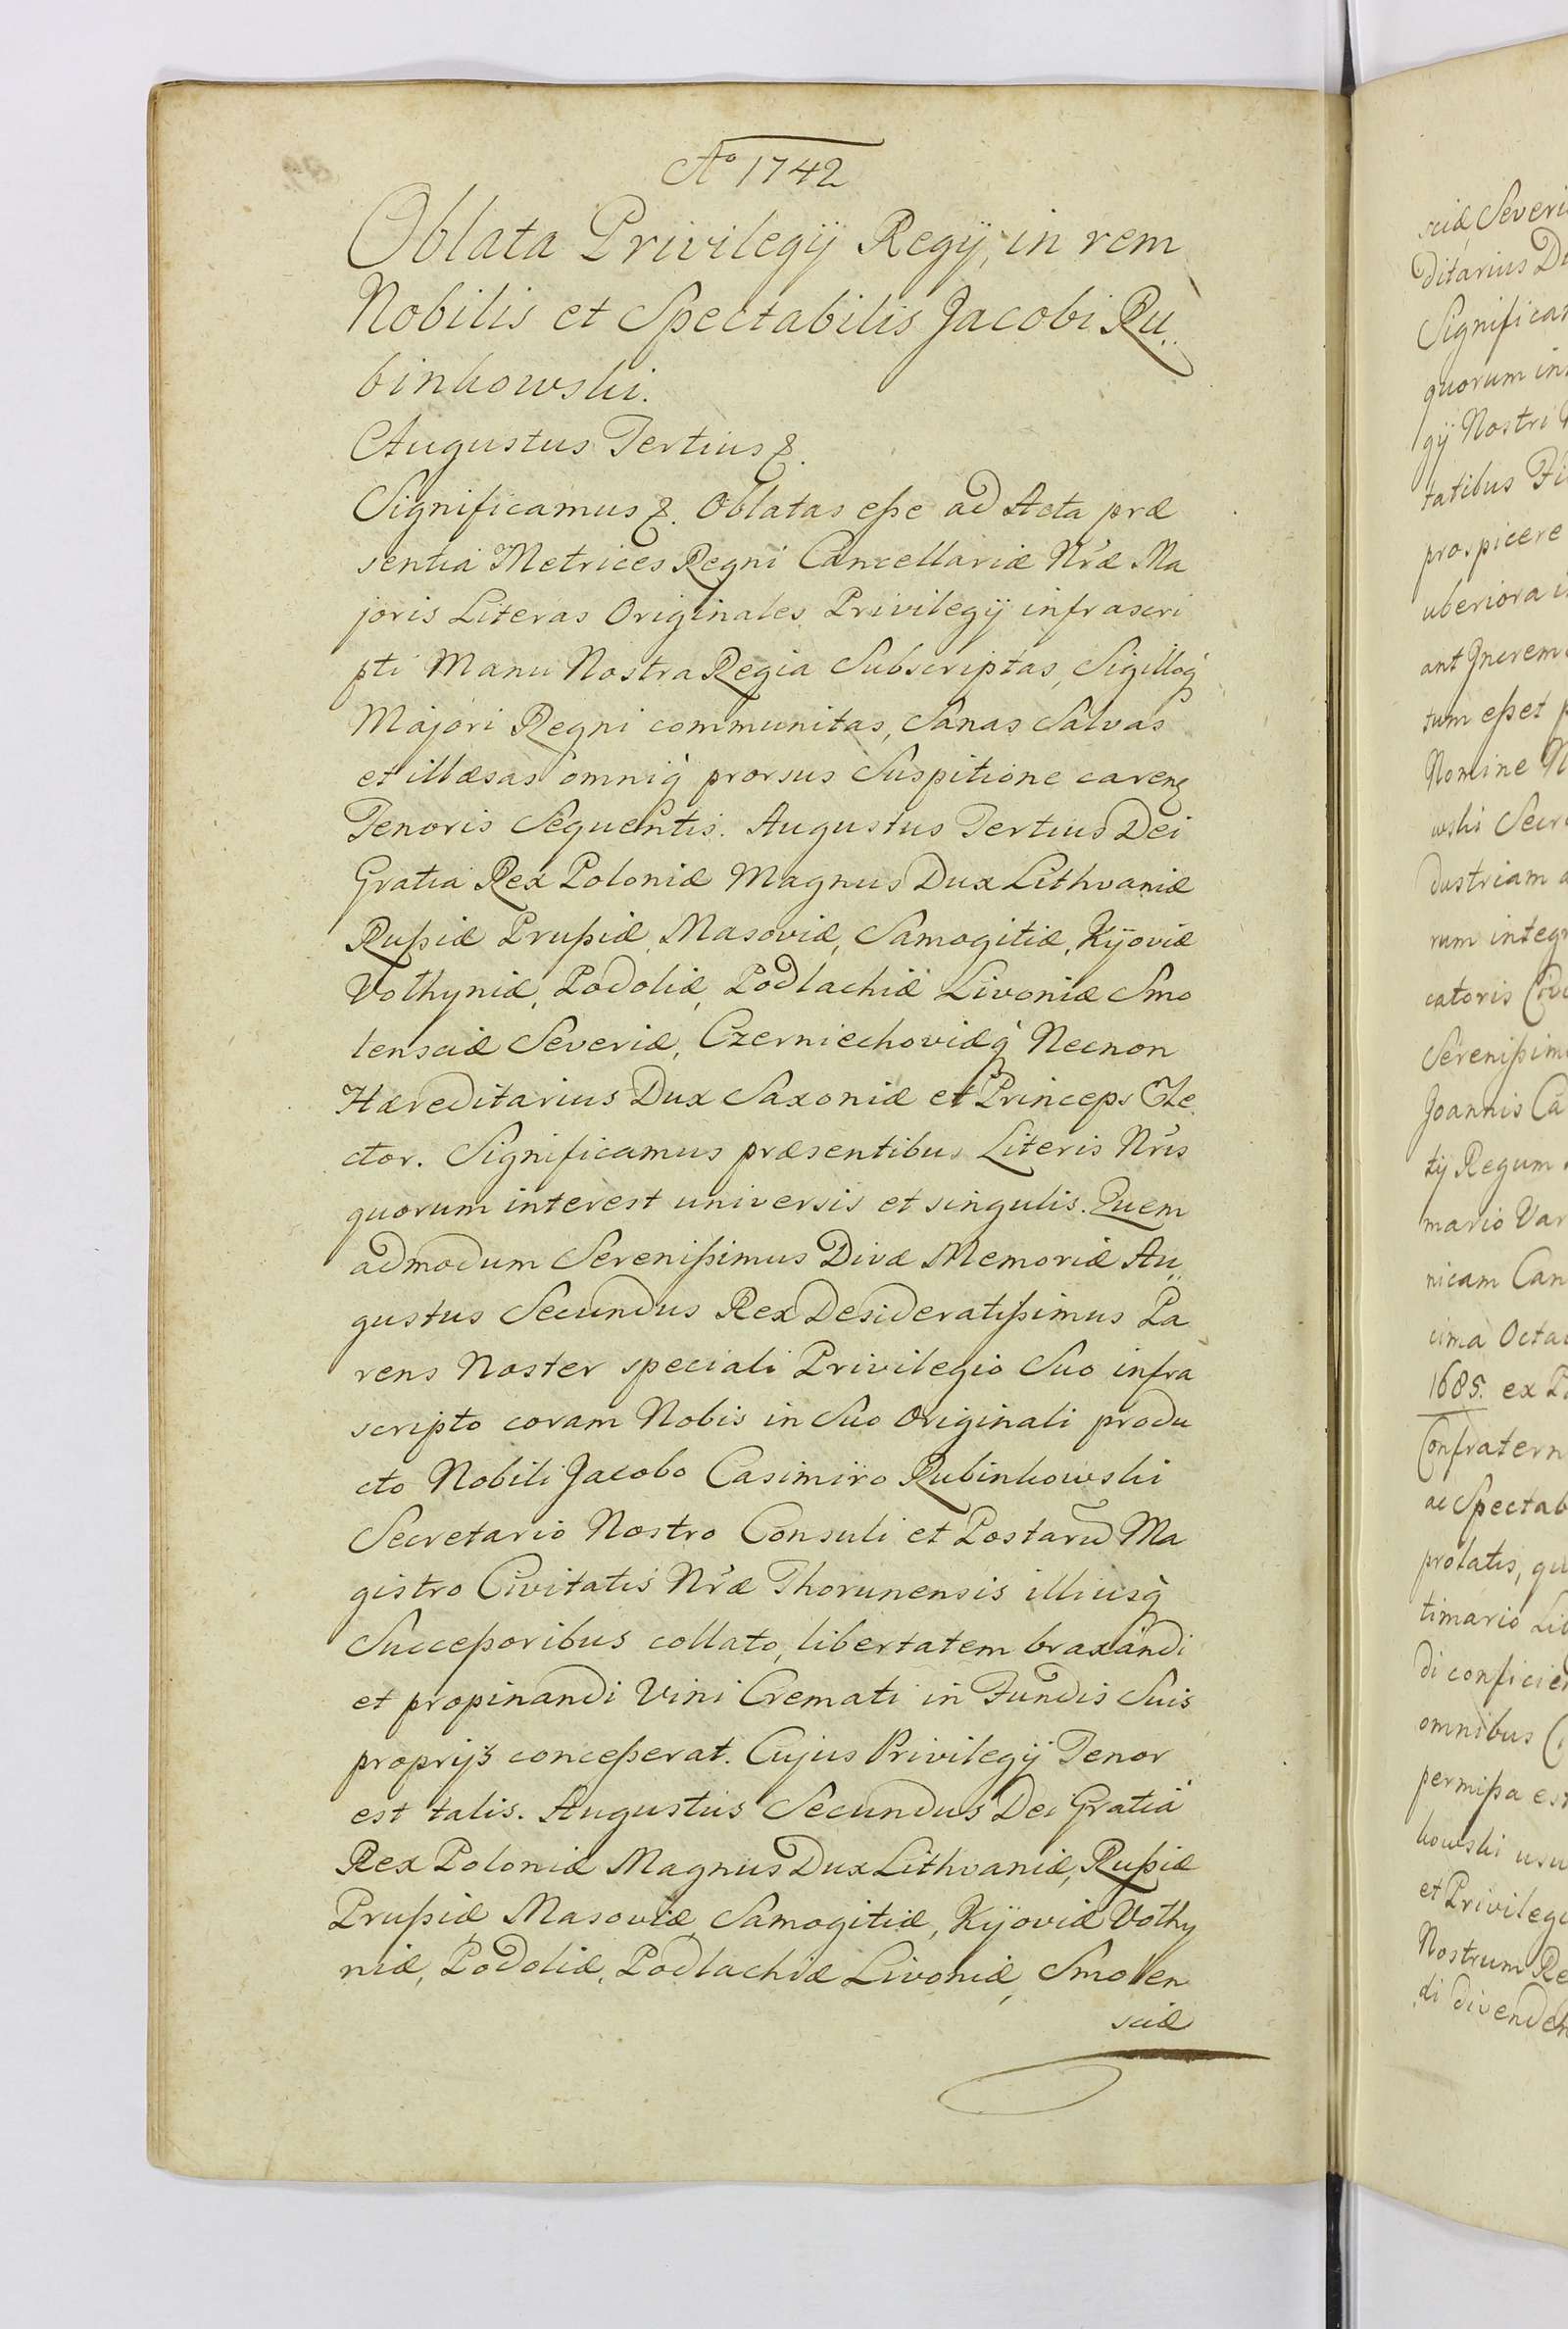 Aº 1742
Oblata Privilegÿ Regÿ, in rem
Nobilis et Spectabilis Jacobi Ru„
binkowski.
Augustus Tertius &.
Significamus &. Oblatas eße ad Acta præ
sentia Metrices Regni Cancellariæ Nræ Ma
joris Literas Originales Privilegÿ infrascri
pti Manu Nostra Regia Subscriptas, Sigilloq́
Majori Regni communitas, Sanas Salvas
et illæsas omniq́ prorsus Suspitione careng
Tenoris Sequentis. Augustus Tertius Dei
Gratia Rex Poloniæ Magnus Dux Lithvaniæ
Rußiæ Prußiæ, Masoviæ, Samogitiæ, Kÿoviæ
Volhyniæ, Podoliæ, Podlachiæ Livoniæ Smo
lensciæ Severiæ, Czerniechoviæq́ Necnon
Hæreditarius Dux Saxoniæ et Princeps Ele
ctor. Significamus præsentibus Literis Nris
quorum interest universis et singulis. Quem
admodum Serenißimus Divæ Memoriæ Au„
gustus Secundus Rex Desideratißimus Pa
rens Noster speciali Privilegio Suo infra
scripto coram Nobis in Suo Originali produ
cto Nobili Jacobo Casimiro Rubinkowski
Secretario Nostro Consuli et Postarũ Ma
gistro Civitatis Nræ Thorunensis illiusq́
Succeßoribus collato, libertatem braxandi
et propinandi Vini Cremati in Fundis Suis
proprÿs conceßerat. Cujus Privilegÿ Tenor
est talis. Augustus Secundus Dei Gratia
Rex Poloniæ Magnus Dux Lithvaniæ, Rußiæ
Prußiæ Masoviæ, Samogitiæ, Kÿoviæ Volhy
niæ, Podoliæ, Podlachiæ Livoniæ, Smolen
sciæ
sciæ, Severi
ditarius Du
Significam
quorum in
gÿ Nostri
tatibus
prospicere
uberiora
ant Increm
tum eßet
Nomine N
wski Secr
dustriam a
rum integr
catoris Civ
Serenißim
Joannis Ca
tÿ Regum
mario Var
nicam Can
cima Octav
1685. ex P
Confratern
ac Spectab
prolatis, qu
timario Lit
di conficien
omnibus
permißa est
kowski usu
et Privilegi
Nostrum Re
di divenden